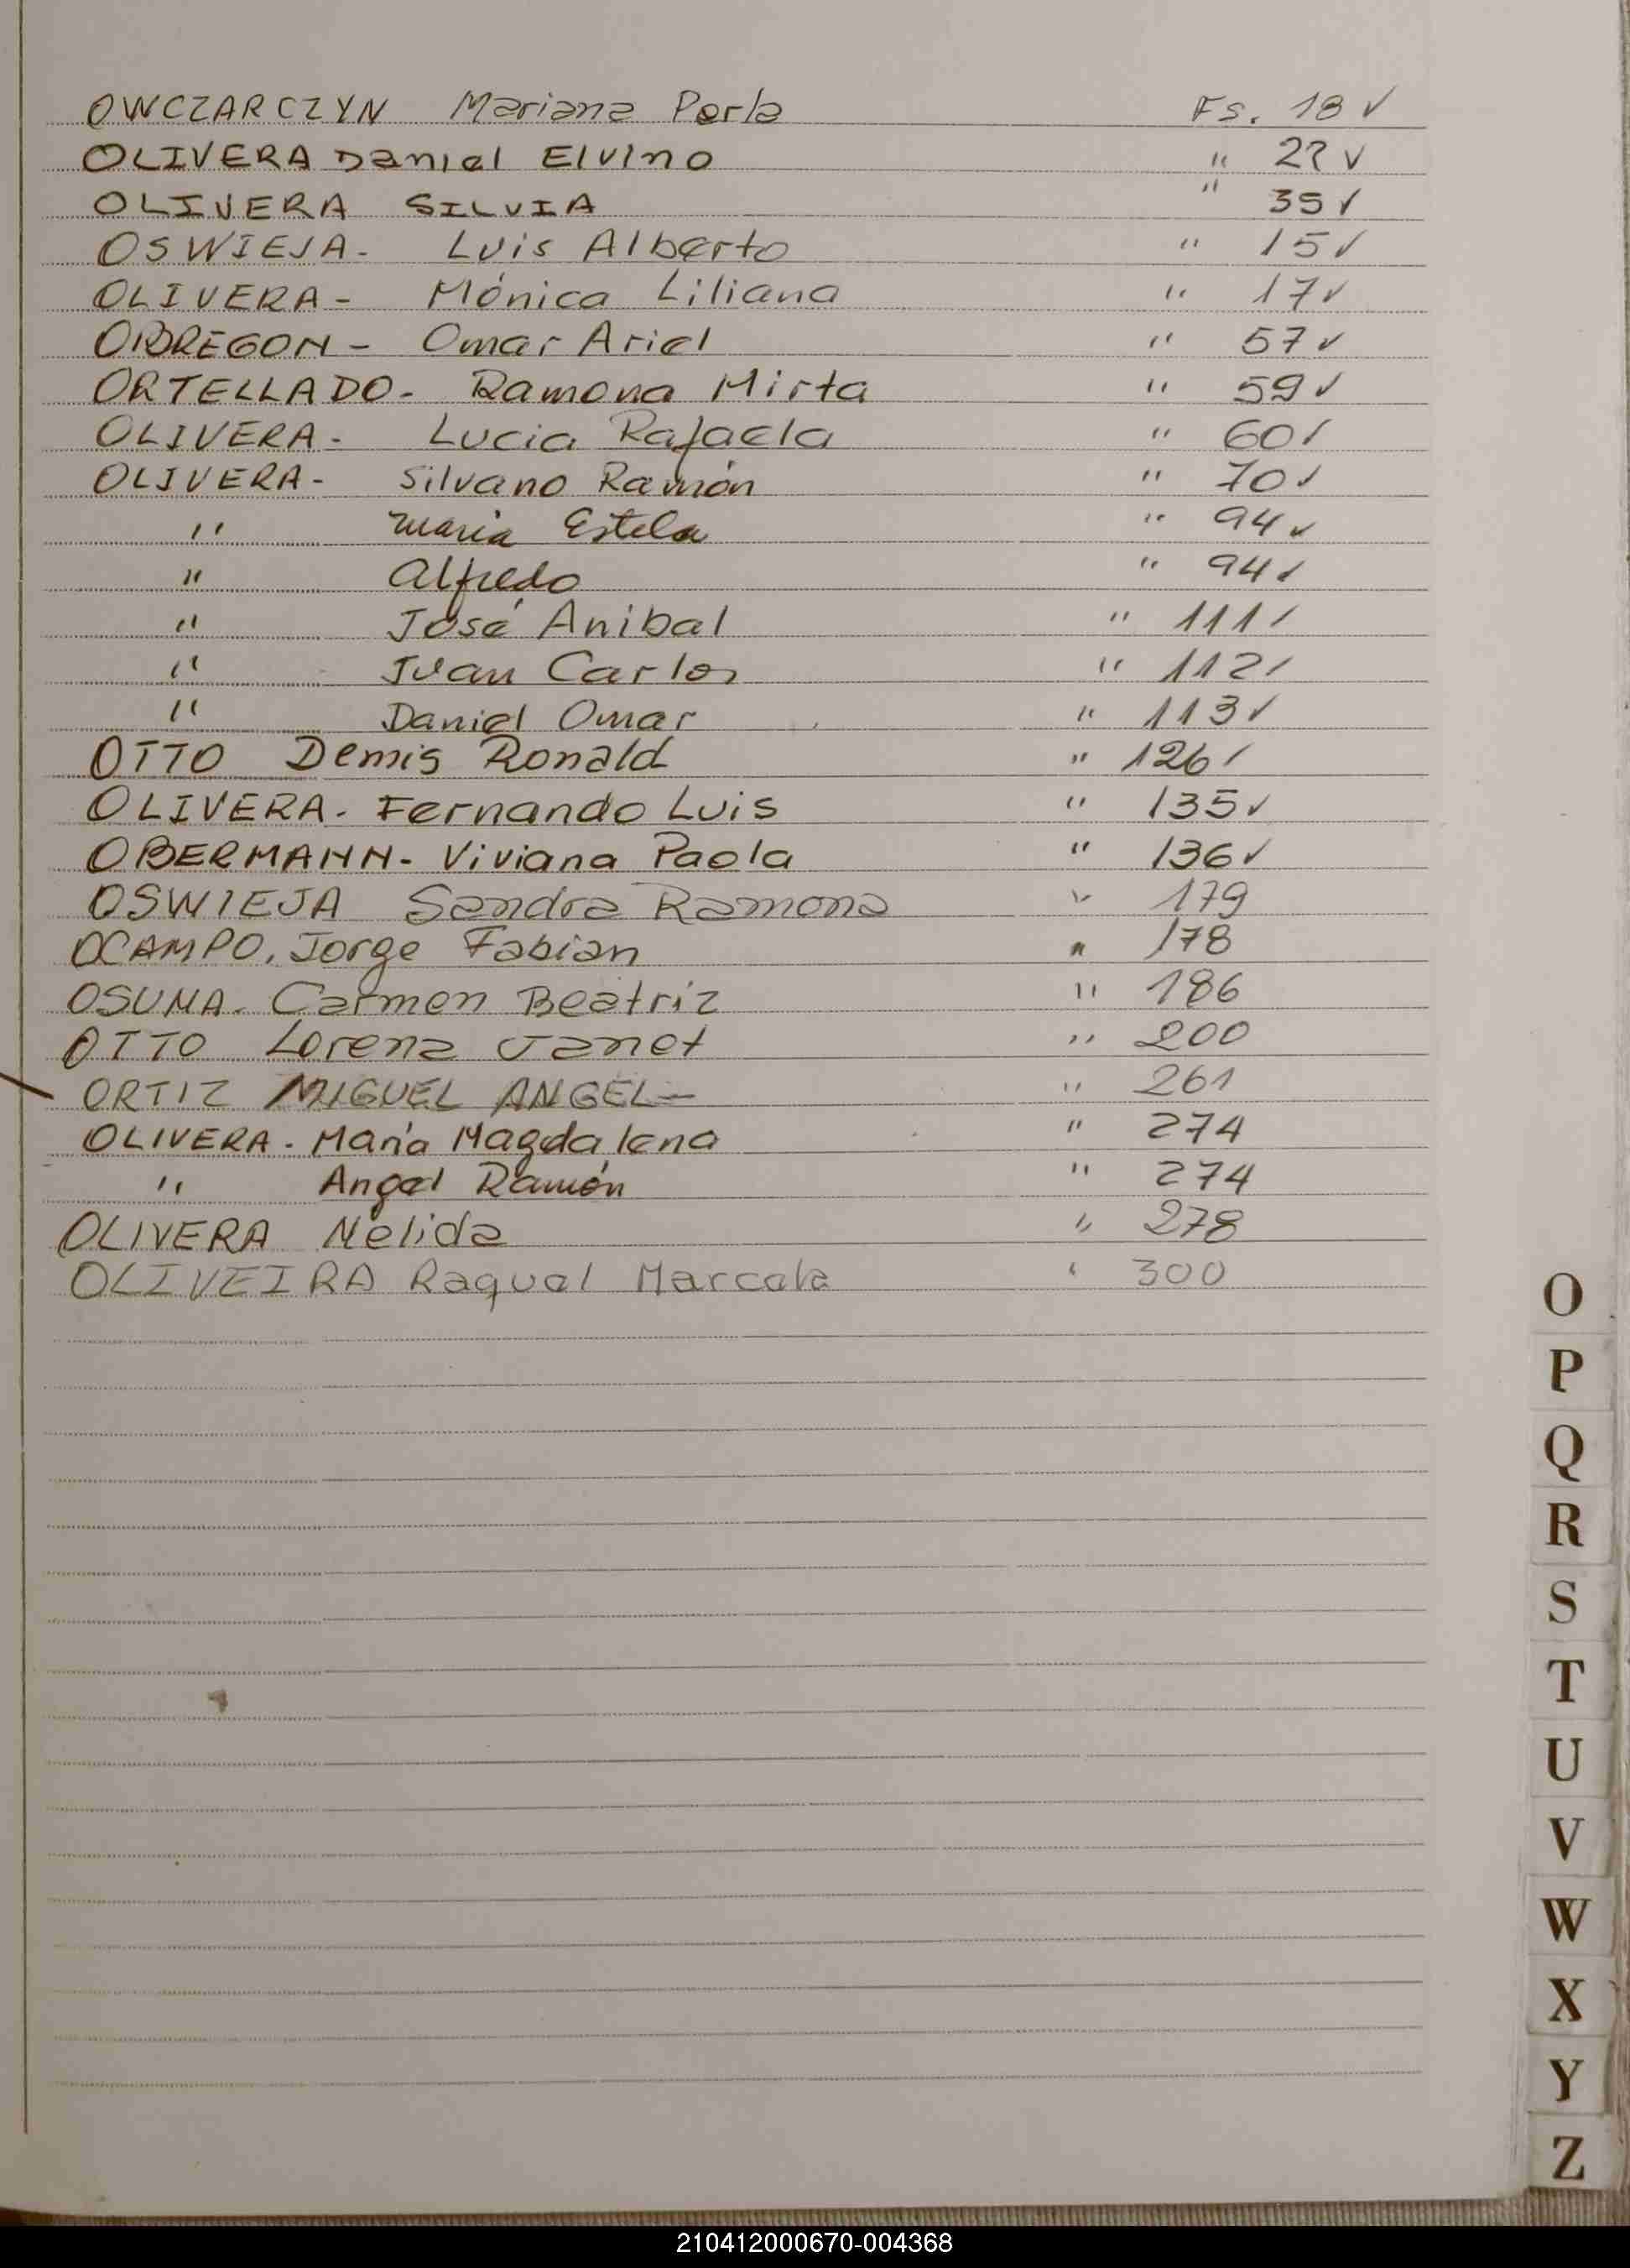 OWCZARCZYN Mariana Perla Fs. 18 ✓
OLIVERA Daniel Elvino " 22 ✓
OLIVERA SILVIA " 35 ✓
OSWIEJA- Luis Alberto " 15 ✓
OLIVERA- Mónica Liliana " 17 ✓
OBREGON- Omar Ariel " 57 ✓
ORTELLADO- Ramona Mirta " 59 ✓
OLIVERA- Lucia Rafaela " 60 ✓
OLIVERA- Silvano Ramón " 70 ✓
" Maria Estela " 94 ✓
" Alfredo " 94 ✓
" José Anibal " 111 ✓
" Juan Carlos " 112 ✓
" Daniel Omar " 113 ✓
OTTO Demis Ronald " 126 ✓
OLIVERA- Fernando Luis " 135 ✓
OBERMANN- Viviana Paola " 136 ✓
OSWIEJA Sandra Ramona " 179
OCAMPO, Jorge Fabian " 178
OSUNA- Carmen Beatriz " 186
OTTO Lorena Janet " 200
ORTIZ MIGUEL ANGEL- " 261
OLIVERA- María Magdalena " 274
" Angel Ramón " 274
OLIVERA Nélida " 278
OLIVEIRA Raquel Marcela " 300
O
P
Q
R
S
T
U
V
W
X
Y
Z
210412000670-004368